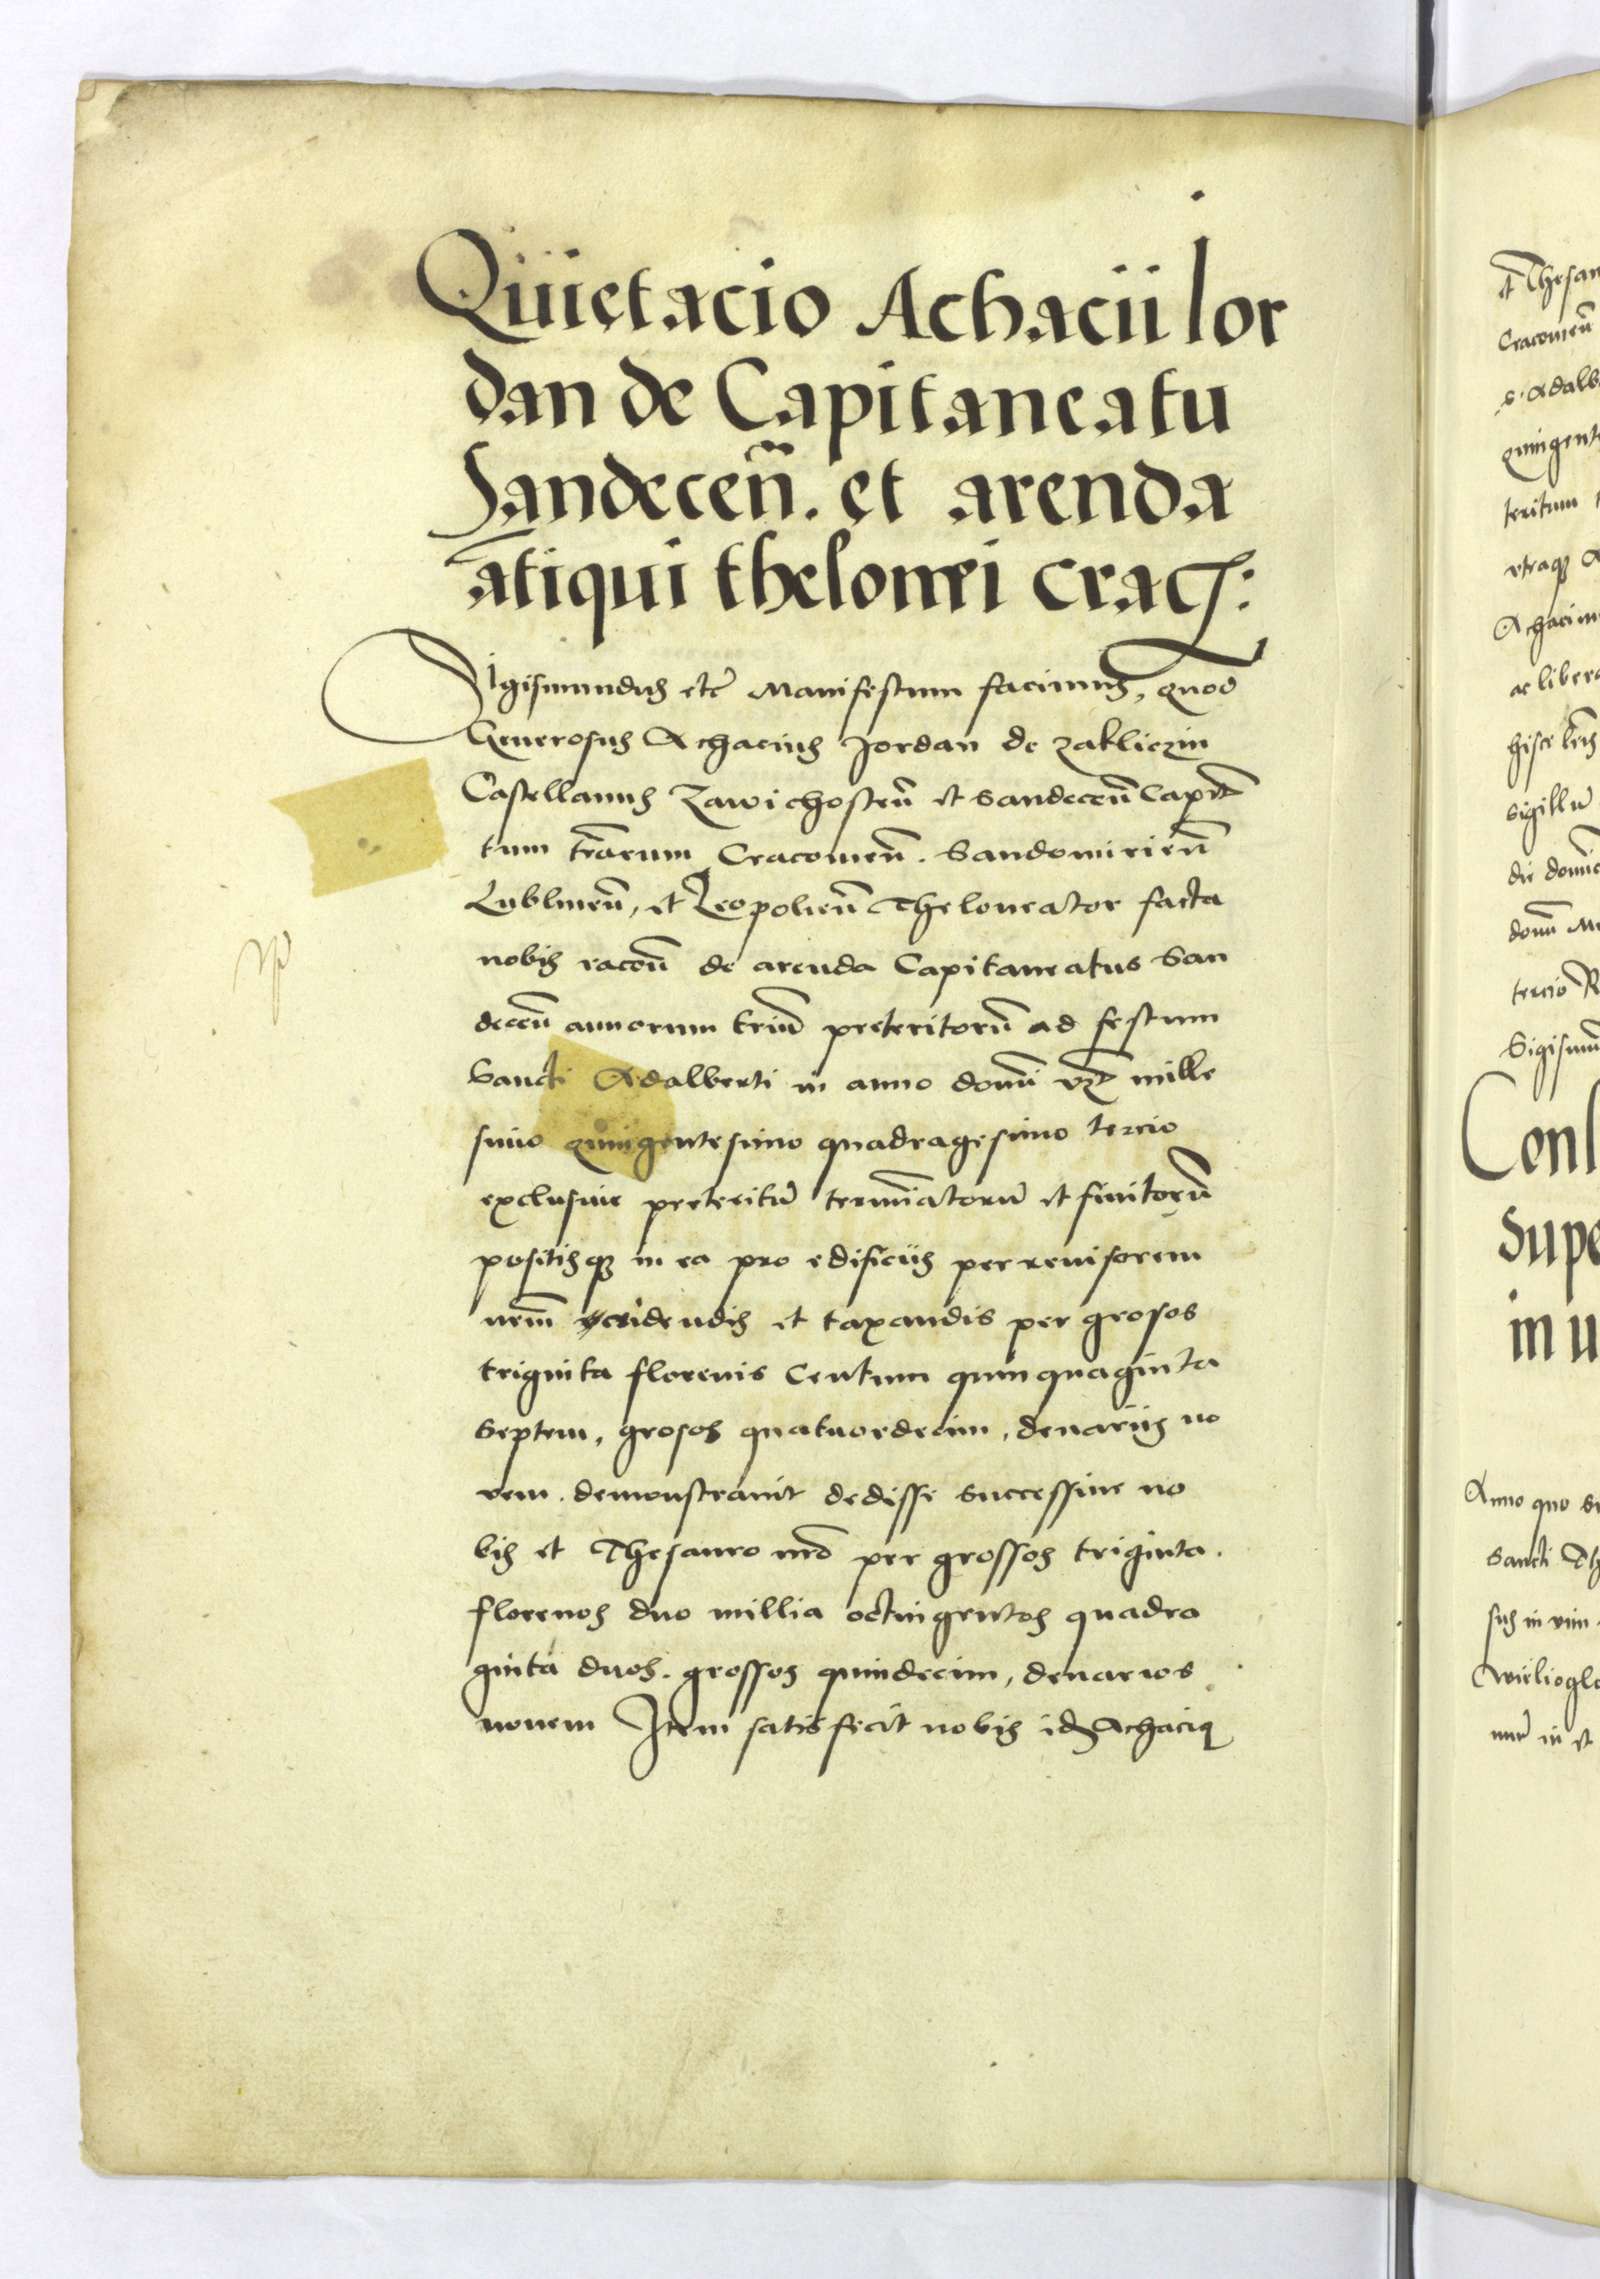 Quietacio Achacii Ior
dan de Capitaneatu
Sandecen̄. et arenda
ātiqui thelonei Crac:
Sigismundus etc̄ Manifestum facimus, quod
Generosus Achacius Jordan de zakliczin
Castellanus Zawichosten̄ et Sandecen̄ Capit
tum trārum Cracouien̄. Sandomirien̄
Lublinen̄, et Leopolien̄ Theloneator facta
nobis racōn̄ de arenda Capitaneatus San
decen̄ annorum triū preteritorū ad festum
Sancti Adalberti in anno domī vzt mille
simo quingentesimo quadragesimo tercio
exclusiue preteritū terminatorū et finitorū
positisqꝫ in ea pro edificiis per reuisorem
nrm̄ videndis et taxandis per grosos
triginta florenis Centum quinquaginta
Septem, grosos quatuordecim, denariis no
vem. demonstrauit dedisse successiue no
bis et Thesauro nrō per grossos triginta.
florenos duo millia octingentos quadra
ginta duos. grossos quindecim, denarios
nouem Item satisfecit nobis idē Achaciꝰ
et Thesau
Cracouien̄
S. Adalb
quingent
teritum
vtraqꝫ A
Achacium
ac libera
hisce lrīs
sigillū
die domīc
domī M
tercio R
Sigismū
Cons
Supe
in u
Anno quo s
Sancti Th
sus in vim
Wieliogl
et